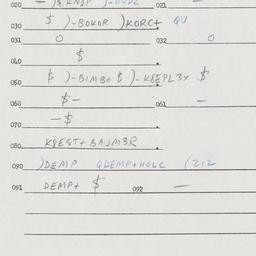 020 — 021 —
030 $ )-BOKOR )KORC+ QU
031 O 032 O
040 $
050 $ )-BIMBO $ )-K8EPL3X $
060 $- 061 —
070 -$
080 K8EST+BAJM3R
090 )DEMP QDEMP+HOLC (212
091 DEMP+ $ 092 —